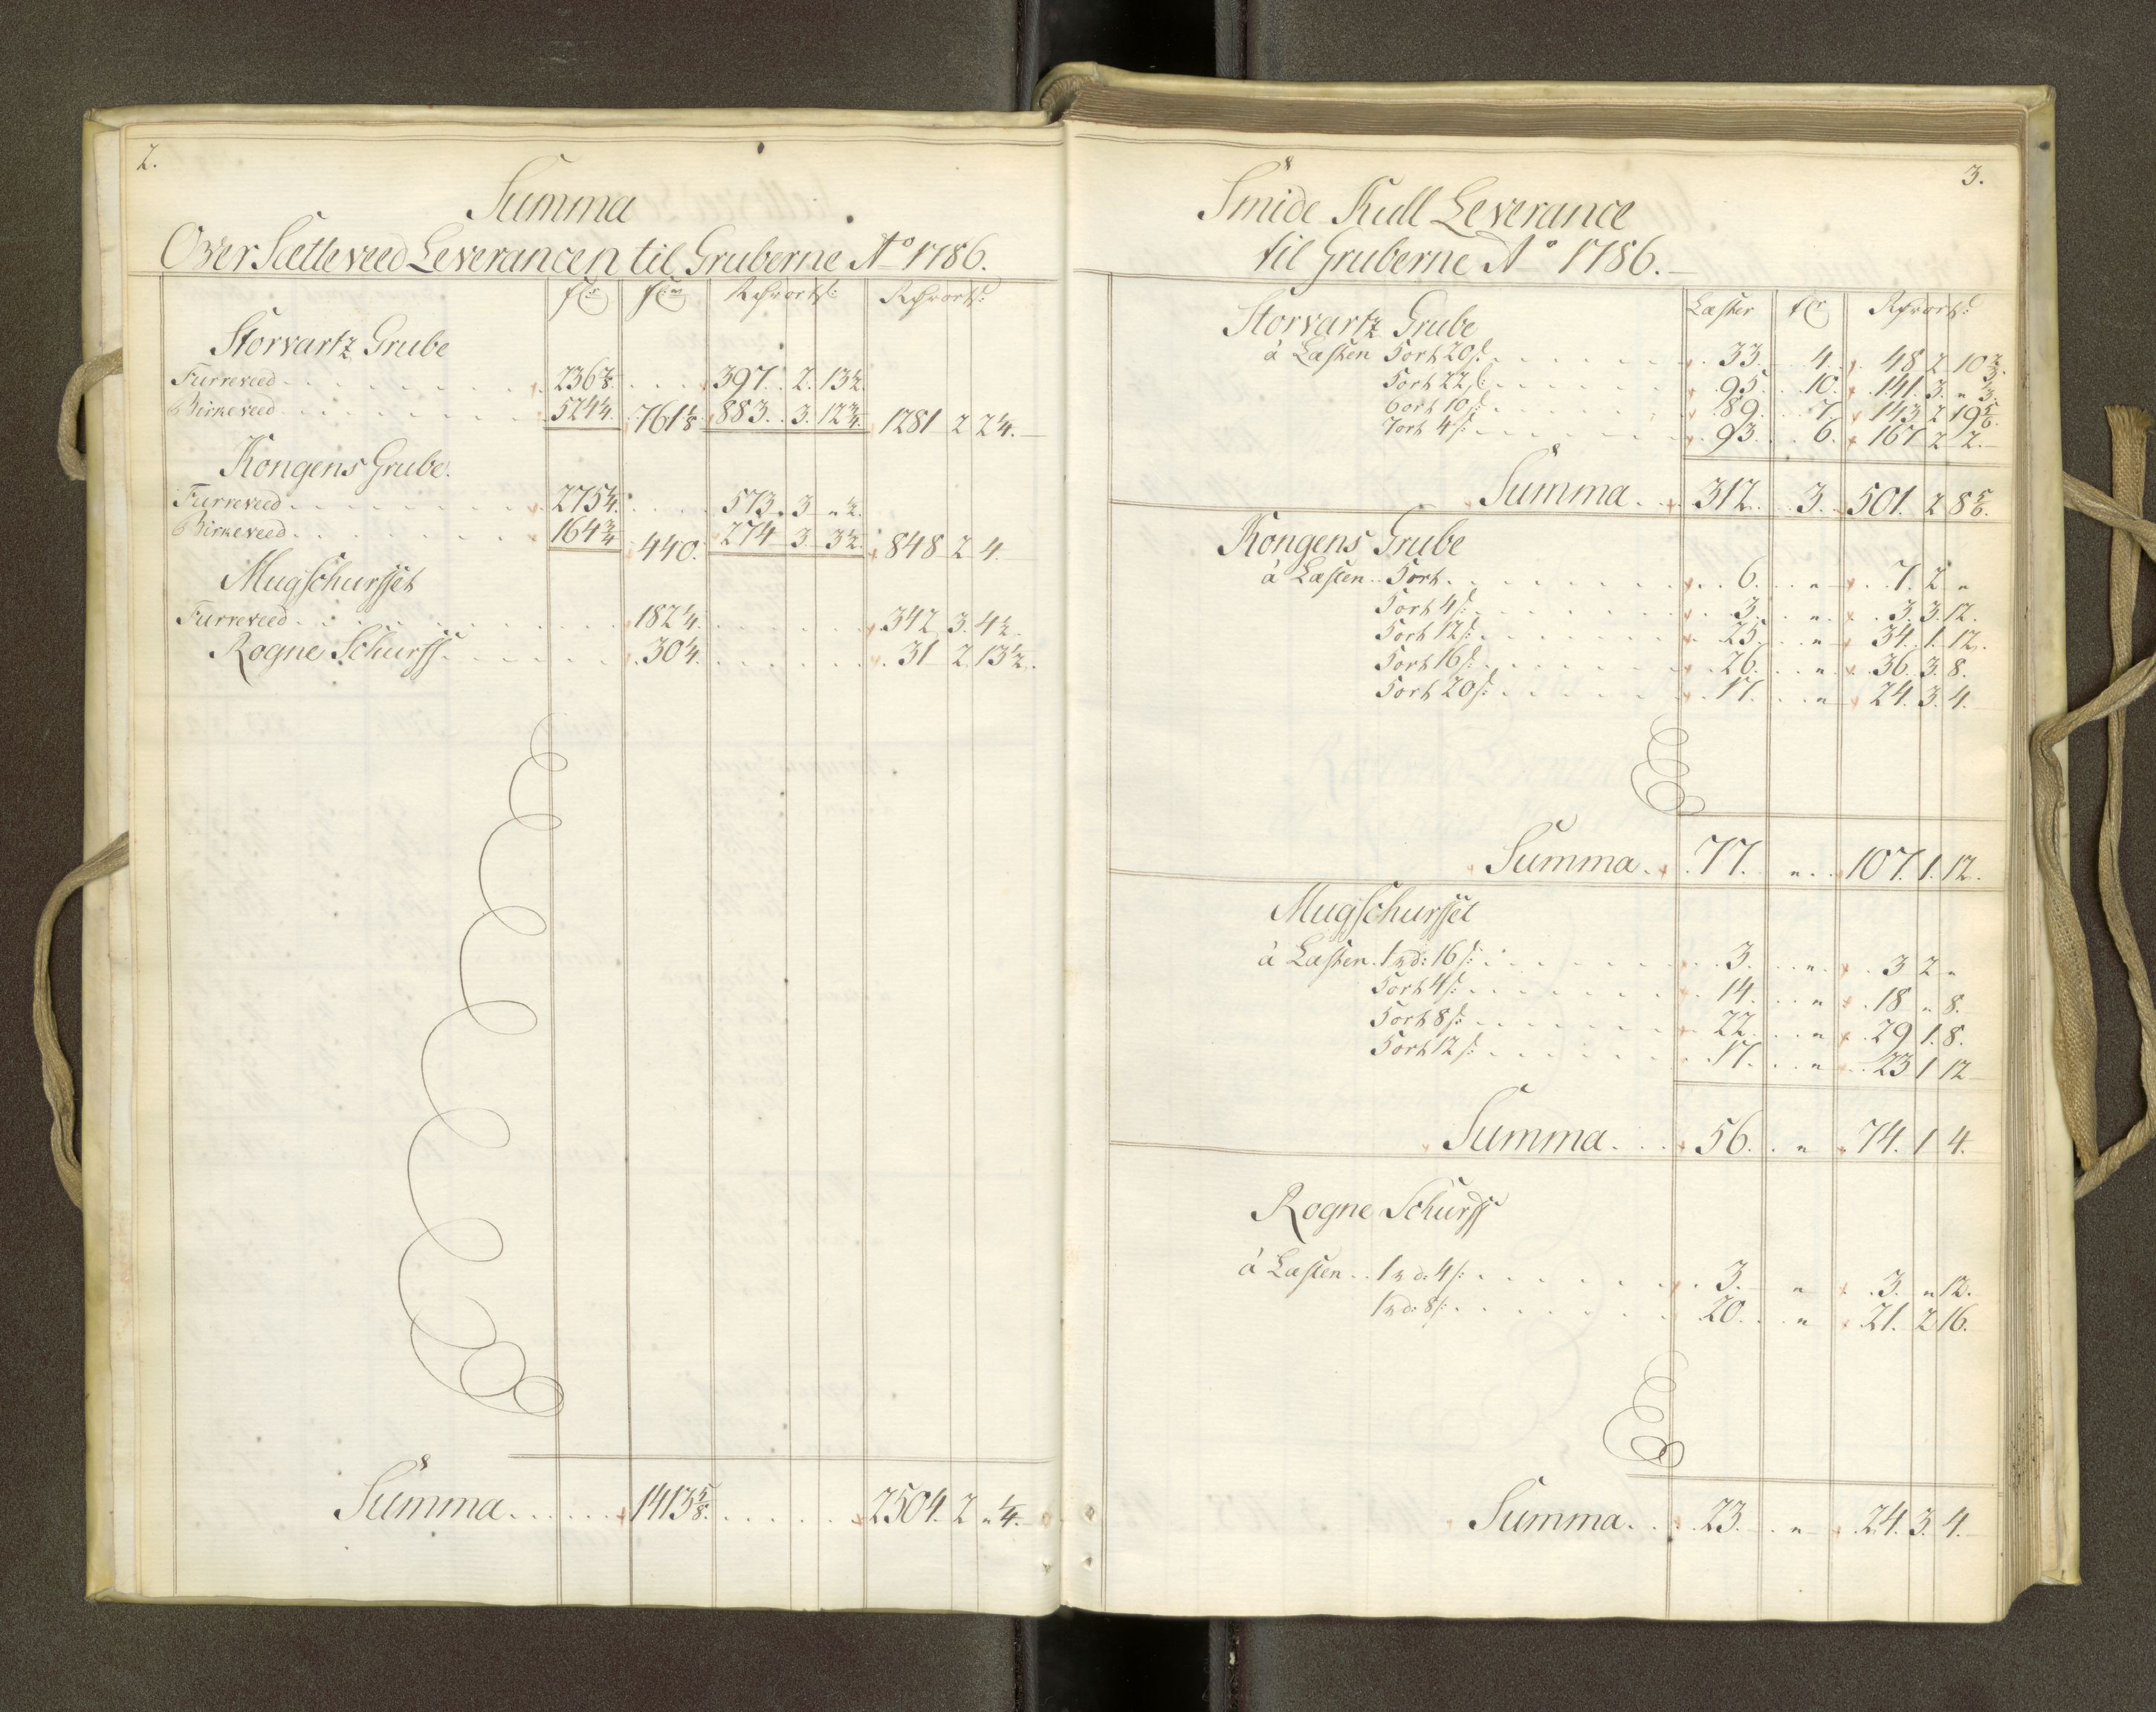 2.
Summa
Over Sætteveed Leverancen til Gruberne Ao 1786.
Storvartz Grube
Furreveed 236 7/8. 397. 2. 13 1/2.
Birkeveed 524 1/4. 761 1/8. 883. 3. 12 3/4. 1281 2 2 1/4.
Kongens Grube.
Furreveed 275 1/4. 573. 3 " 1/2.
Birkeveed 164 3/4 440. 274 3 3 1/2. 848 2 4.
Mugschursset
Furreveed 182 1/4. 342 3. 4 1/2.
Rogne Schurff 30 1/4. 31 2. 13 1/2.
Summa 1413 5/8. 2504. 2 " 1/4.
3.
Smide Kull Leverance
til Gruberne Ao 1786.
Læster
Storvartz Grube
à Læsten 5 ort 20 s: 33. 4. 48 2 10 2/3.
5 ort 22 s: 95. 10. 141. 3. " 1/3.
6 ort 10 s: 89. 7. 143 2 19 5/6.
7 ort 4 s: 93. 6. 167 2 2.
Summa 312. 3. 501. 2 8 5/6.
Kongens Grube
à Læsten 5 ort 6. " 7. 2 "
5 ort 4 s: 3. " 3. 3. 12.
5 ort 12 s: 25. " 34. 1. 12.
5 ort 16 s: 26. " 36. 3. 8.
5 ort 20 s: 17. " 24. 3. 4.
Summa 77. " 107. 1. 12.
Mugschursset
à Læsten 1 rd: 16 s: 3. " 3 2 "
5 ort 4 s: 14. " 18 " 8.
5 ort 8 s: 22. " 29 1. 8.
5 ort 12 s: 17. " 23 1 12
Summa 56. " 74. 1 4.
Rogne Schurff
à Læsten 1 rd: 4 s: 3. " 3. " 12.
1 rd: 8 s: 20. " 21. 2 16.
Summa 23. " 24. 3. 4.